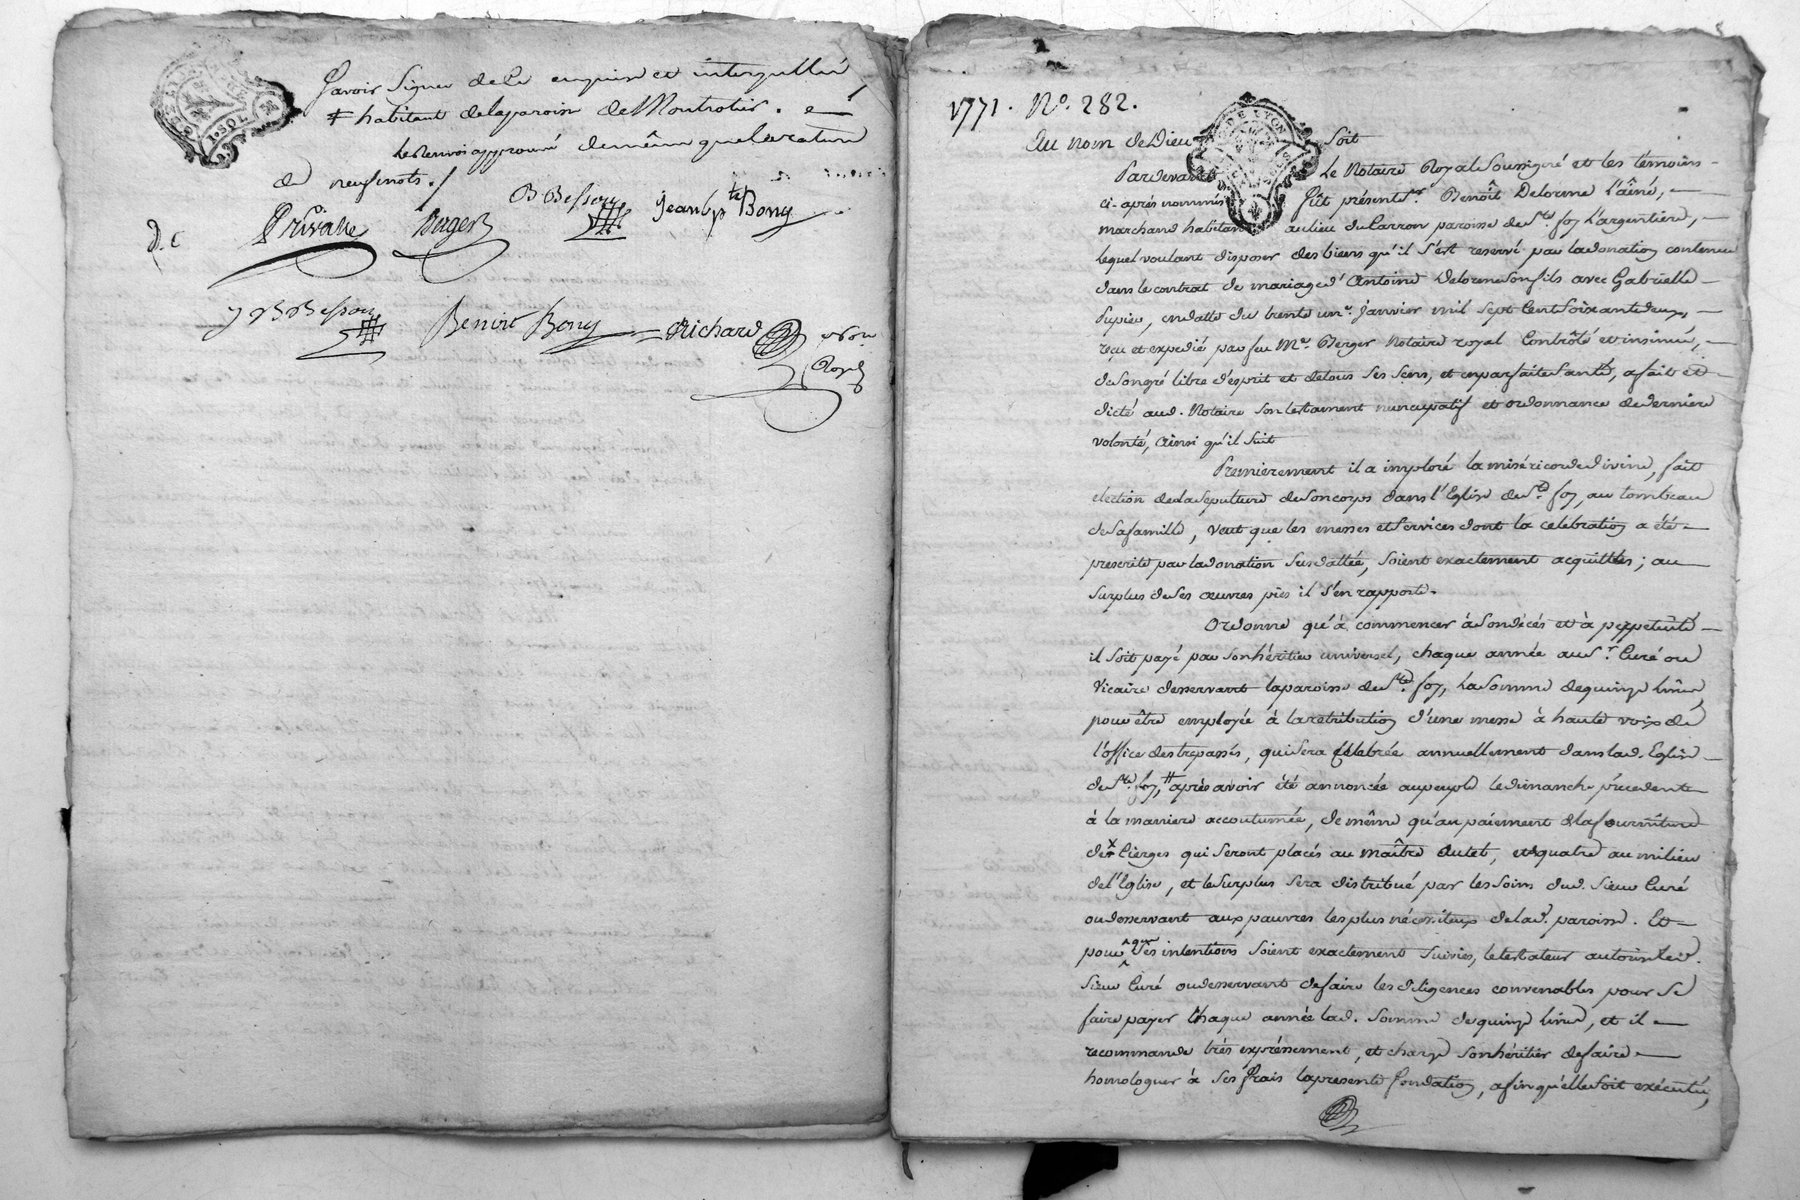 Scavoir Signer de Ce enquis et interpellé
# habitant delaparoisse de Montrotier. e
les renvois approuvé demême quelarature
de neufmots./.
B Bessony Jean bpte Bony
D. C Privatte Berger
J B B Bessony Benoit Bony Richard Nore
Royal
GEN. DE LYON
1. SOL
1771. No. 282.
GEN. DE LYON
Au nom de Dieu Soit
Pardevant Le Notaire Royal Soussigné et les témoins
ci-après nommés fût présent Sr. Benoît Delorme l'aîné,
marchand habitant au lieu du Carron paroisse de Ste foy L'argentiere,
lequel voulant disposer des biens qu'il s'est reservé par la donation contenue
dans le contrat de mariage d'Antoine Delorme son fils avec Gabrielle
Pupier, en datte du trente un. Janvier mil Sept Cent Soixante deux,
reçu et expedié par feu Me. Berger Notaire royal Contrôlé et insinué,
de Son gré libre d'esprit et de tous Ses Sens, et en parfaite Santé, a fait et
dicté aud. Notaire Son testament nuncupatif et ordonnance de derniere
volonté, Ainsi qu'il Suit
Premierement il a imploré la miséricorde divine, fait
election de la Sepulture de Son corps dans l'Eglise de Ste foy, au tombeau
de Sa famille, veut que les messes et Services dont la celebration a été
prescrite par la donation Susdattée, Soient exactement acquittés; au
Surplus de Ses œuvres pies il S'en rapporte.
Ordonne qu'à commencer à Son décés et à perpétuité
il Soit payé par Son héritier universel, chaque année au Sr. Curé ou
Vicaire desservant la paroisse de Ste. foy, La Somme de quinze livres
pour être employée à la retribution d'une messe à haute voix de
l'office des trepassés, qui Sera Célebrée annuellement dans lad. Eglise
de Ste. foy, # après avoir été annoncée au peuple le dimanche précedent
à la maniere accoutumée, de même qu'au paiement & la fourniture
de x Cierges qui Seront placés au Maître Autel, et quatre au milieu
de l'Eglise, et le Surplus Sera distribué par les Soins dud. Sieur Curé
ou desservant aux pauvres les plus nécessiteux de lad. paroisse. Et
pour que Ses intentions Soient exactement Suivies, le testateur autorise led.
Sieur Curé ou desservant de faire les diligences convenables pour Se
faire payer Chaque année lad. Somme de quinze livres, et il
recommande très expréssement, et charge Son héritier de faire
homologuer à Ses frais la presente fondation, afin qu'elle Soit exécutée,